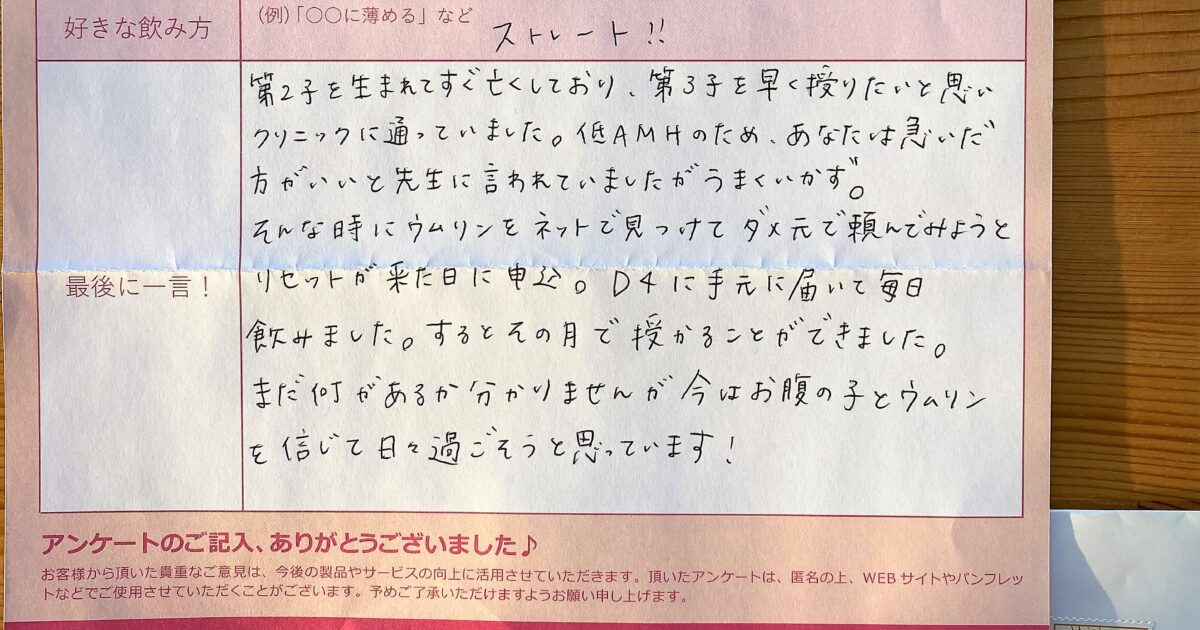 好きな飲み方
(例)「〇〇に薄める」など
ストレート!!
第2子を生まれてすぐ亡くしており、第3子を早く授りたいと思い
クリニックに通っていました。低AMHのため、あなたは急いだ
方がいいと先生に言われていましたがうまくいかず。
そんな時にウムリンをネットで見つけてダメ元で頼んでみようと
最後に一言!
リセットが来た日に申込。D4に手元に届いて毎日
飲みました。するとその月で授かることができました。
まだ何があるか分かりませんが今はお腹の子とウムリン
を信じて日々過ごそうと思っています!
アンケートのご記入、ありがとうございました♪
お客様から頂いた貴重なご意見は、今後の製品やサービスの向上に活用させていただきます。頂いたアンケートは、匿名の上、WEBサイトやパンフレッ
トなどでご使用させていただくことがございます。予めご了承いただけますようお願い申し上げます。